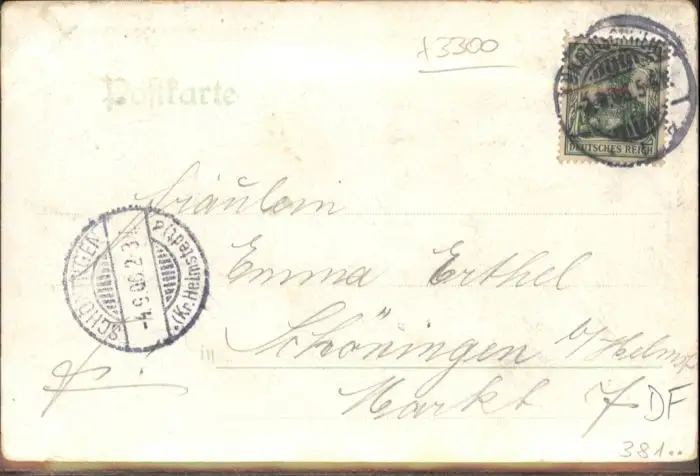 x3300
Postkarte
DEUTSCHES REICH
Fräulein
Emma Erthel
in Schöningen b/Helmst
Markt 7
SCHÖNINGEN
-4.9.06.2-3N
(Kr. Helmstedt)
DF
381..